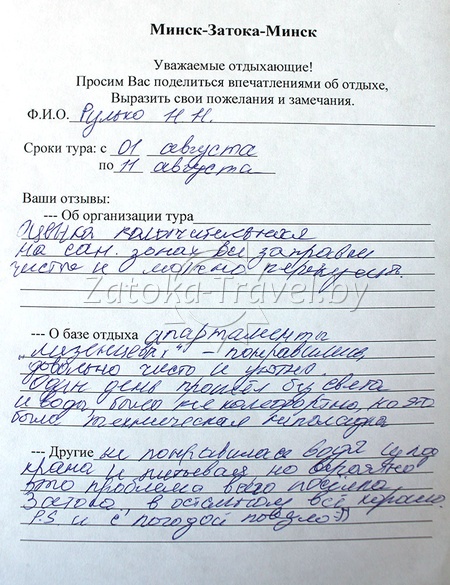 Минск-Затока-Минск
Уважаемые отдыхающие!
Просим Вас поделиться впечатлениями об отдыхе,
Выразить свои пожелания и замечания.
Ф.И.О. Рулько Н Н.
Сроки тура: с 01 августа
по 11 августа
Ваши отзывы:
--- Об организации тура
на сан. зонах
чисто и можно
Zatoka-Travel.by
--- О базе отдыха апартаменты
- понравились,
довольно чисто и уютно.
Один день прошёл без света
и воды, было не комфортно, но это
была техническая неполадка
--- Другие не понравилась вода из под
крана и питьевая но вероятно
это проблема всего посёлка
Затока, в остальном всё хорошо.
P.S и с погодой повезло :))